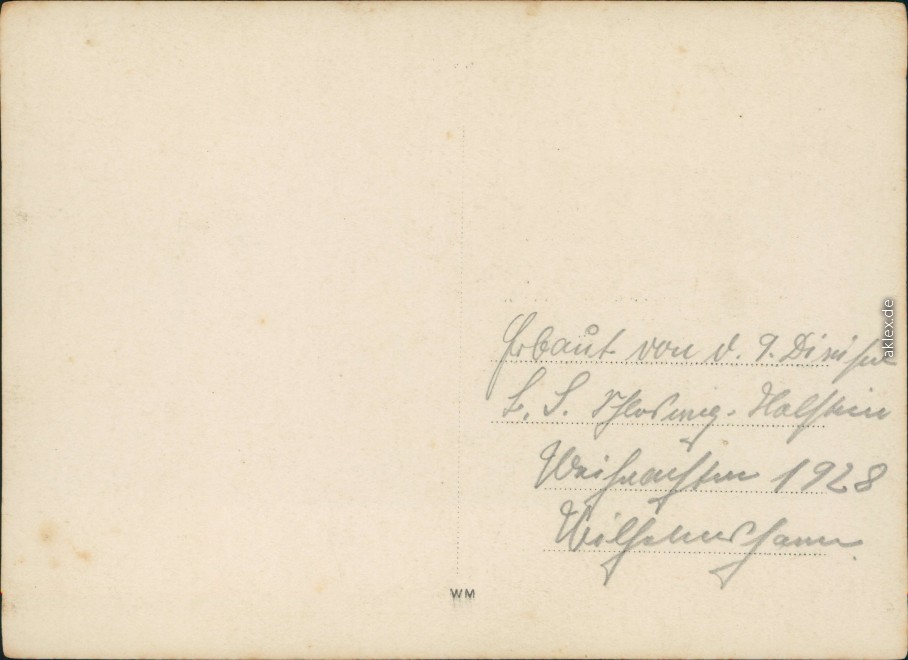 Erbaut von d. 9. Division
L. S. Schleswig-Holstein
Weihnachten 1928
Wilhelmshaven.
WM
aklex.de